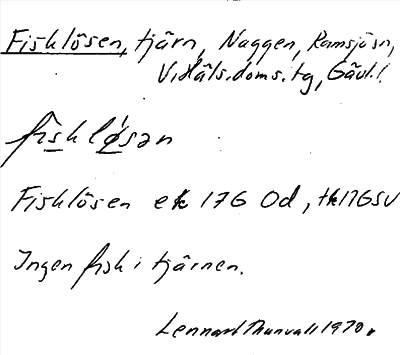 Fisklösen, tjärn, Naggen, Ramsjösn,
Vidäls.doms.tg, Gävl.l.
fisklǿsən
Fisklösen ek 17G Od, tk17GSV
Ingen fisk i tjärnen.
Lennart Thunvall 1970.